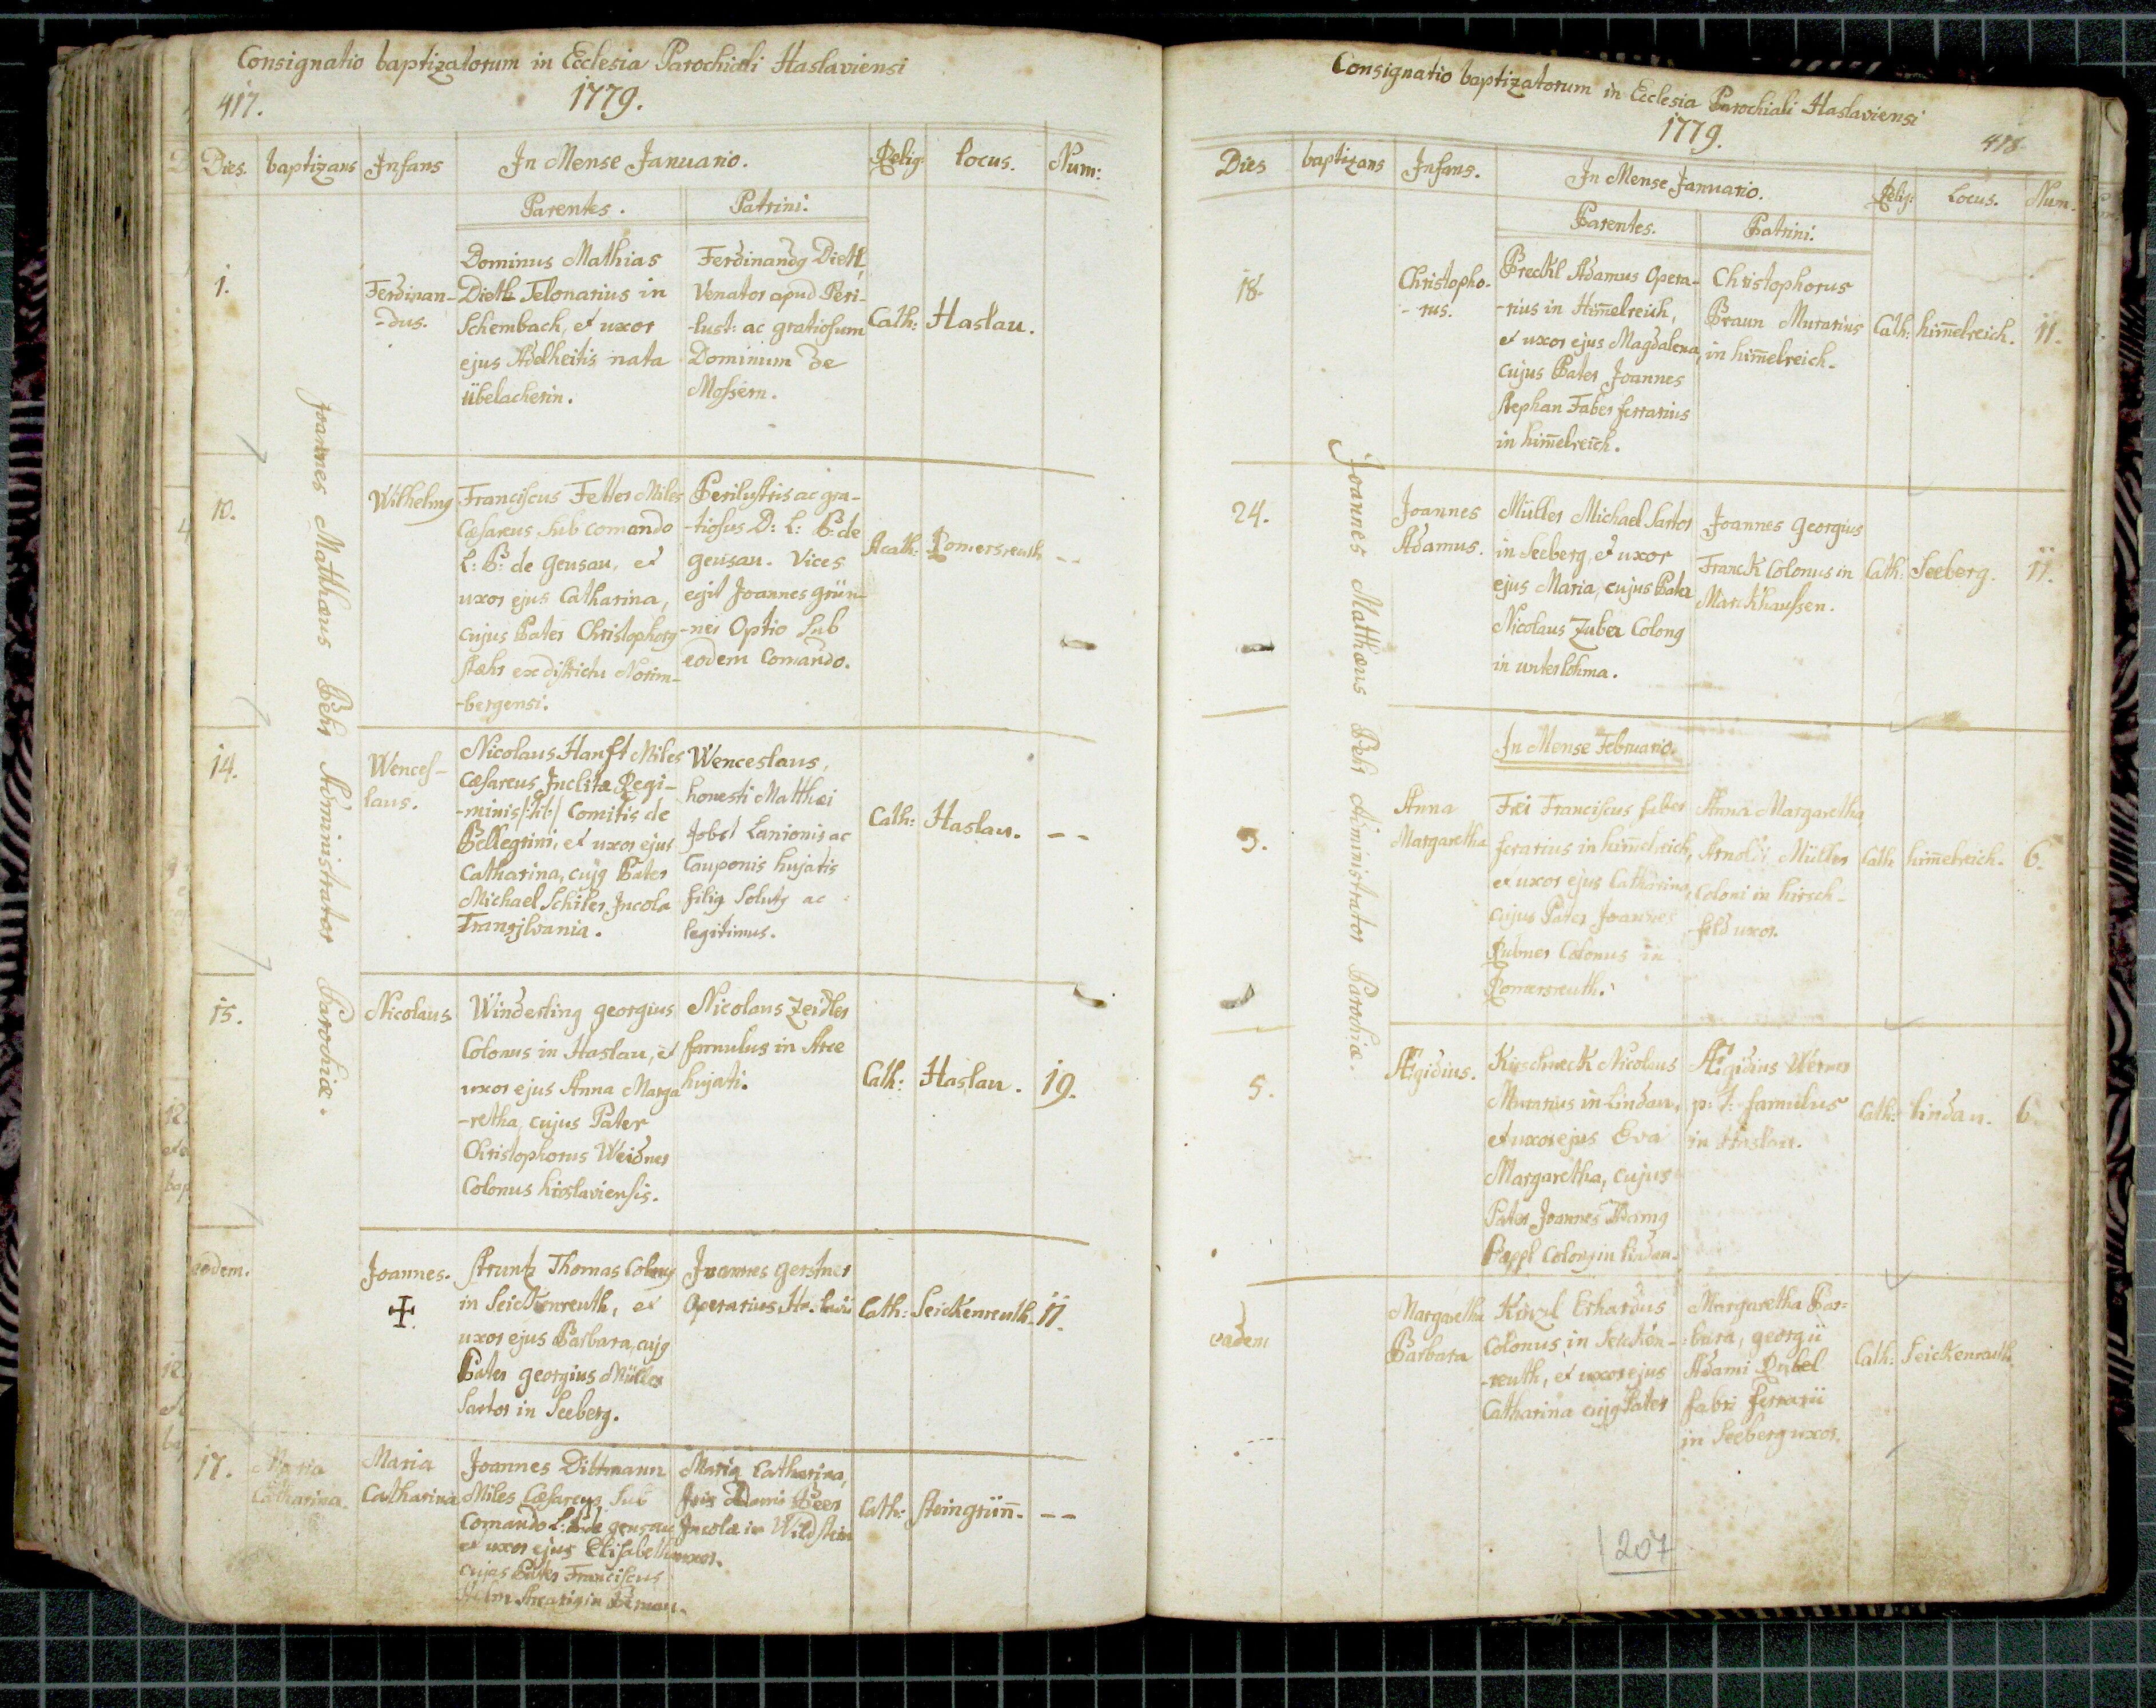 Consignatio baptizatorum in Ecclesia Parochiali Haslaviensi
417.
1779.
Dies. baptizans Infans In Mense Januario. Relig: locus. Num:
Parentes. Patrini.
1.
Ferdinan-
-dus.
Dominus Mathias
Dietl Telonarius in
Schembach, et uxor
ejus Adelheitis nata
Übelackerin.
Ferdinandg Dietl,
Venator apud Peri-
-lust: ac gratiosum
Dominum de
Mossern.
Cath: Haslau.
Joannes Matthæus Behr Administrator Parochiæ.
10.
Wilhelmg
Franciscus Fetter Miles
Cæsareus sub comando
L: B: de Geusau, et
uxor ejus Catharina,
cujus Pater Christophorg
Stæhr ex districtu Norim-
-bergensi.
Perilustris ac gra-
-tiosus D: L: B: de
geusau. Vices
egit Joannes Grün-
-ner Optio sub
eodem Comando.
Acath: Romersreuth --
14.
Wences-
laus.
Nicolaus Hanft Miles
Cæsareus Inclitæ Regi-
-minis /:tit:/ Comitis de
Pellegrini, et uxor ejus
Catharina, cujg Pater
Michael Schiler Incola
Transjlvania.
Wenceslaus,
honesti Matthæi
Jobst Lanionis ac
Cauponis hujatis
filig solutg ac
legitimus.
Cath: Haslau. --
15.
Nicolaus
Winderling georgius
Colonus in Haslau, et
uxor ejus Anna Marga
-retha, cujus Pater
Christophorus Weidner
Colonus haslaviensis.
Nicolaus Zeidler
famulus in Arce
hujati.
Cath: Haslau. 19.
eodem.
Joannes.
✠
Struntz Thomas Colong
in Seickenreuth, et
uxor ejus Barbara, cujg
Pater georgius Müller
Sartor in Seeberg.
Joannes gerstner
Operarius
Cath: Seickenreuth. 11.
17.
Maria
Catharina.
Maria
Catharina
Joannes Dittmann
Miles Cæsareus sub
Comando L: B: de geusau
et uxor ejus Elisabetha
cujus Pater Franciscus
Maria Catharina,
Adami Beer
Incolæ in Wildstein
uxor.
Cath: Steingrün̄. --
Consignatio baptizatorum in Ecclesia Parochiali Haslaviensi
1779.
418
Dies baptizans Infans. In Mense Januario. Relig: Locus. Num.
Parentes. Patrini.
18.
Christopho-
-rus.
Preckl Adamus Opera-
-rius in Him̄elreich,
et uxor ejus Magdalena,
cujus Pater Joannes
Stephan Faber ferrarius
in him̄elreich.
Christophorus
Braun Murarius
in him̄elreich.
Cath: him̄elreich. 11.
Joannes Matthæus Behr Administrator Parochiæ.
24.
Joannes
Adamus.
Müller Michael Sartor
in Seeberg, et uxor
ejus Maria, cujus Pater
Nicolaus Zuber Colong
in unterlohma.
Joannes Georgius
Franck Colonus in
Marckhaussen.
Cath: Seeberg. 11.
In Mense Februario.
3.
Anna
Margaretha
Frei Franciscus faber
ferarius in him̄elreich,
et uxor ejus Catharina,
cujus Pater Joannes
Rubner Colonus in
Romersreuth.
Anna Margaretha
Arnoldi Müller
Coloni in hirsch-
feld uxor.
Cath him̄elreich. 6.
5.
Ægidius.
Kirschneck Nicolaus
Murarius in Lindau,
et uxor ejus Eva
Margaretha, cujus
Pater Joannes Adamg
Pappl Colong in Lindau.
Ægidius Werner
p: t: famulus
in Haslau.
Cath: Lindau. 6.
eadem
Margaretha
Barbara
Künzl Erhardus
Colonus in Seicken-
-reuth, et uxor ejus
Catharina cujg Pater
Margaretha Bar=
bara, georgii
Adami
fabri ferrarii
in Seeberg uxor.
Cath: Seickenreuth
207